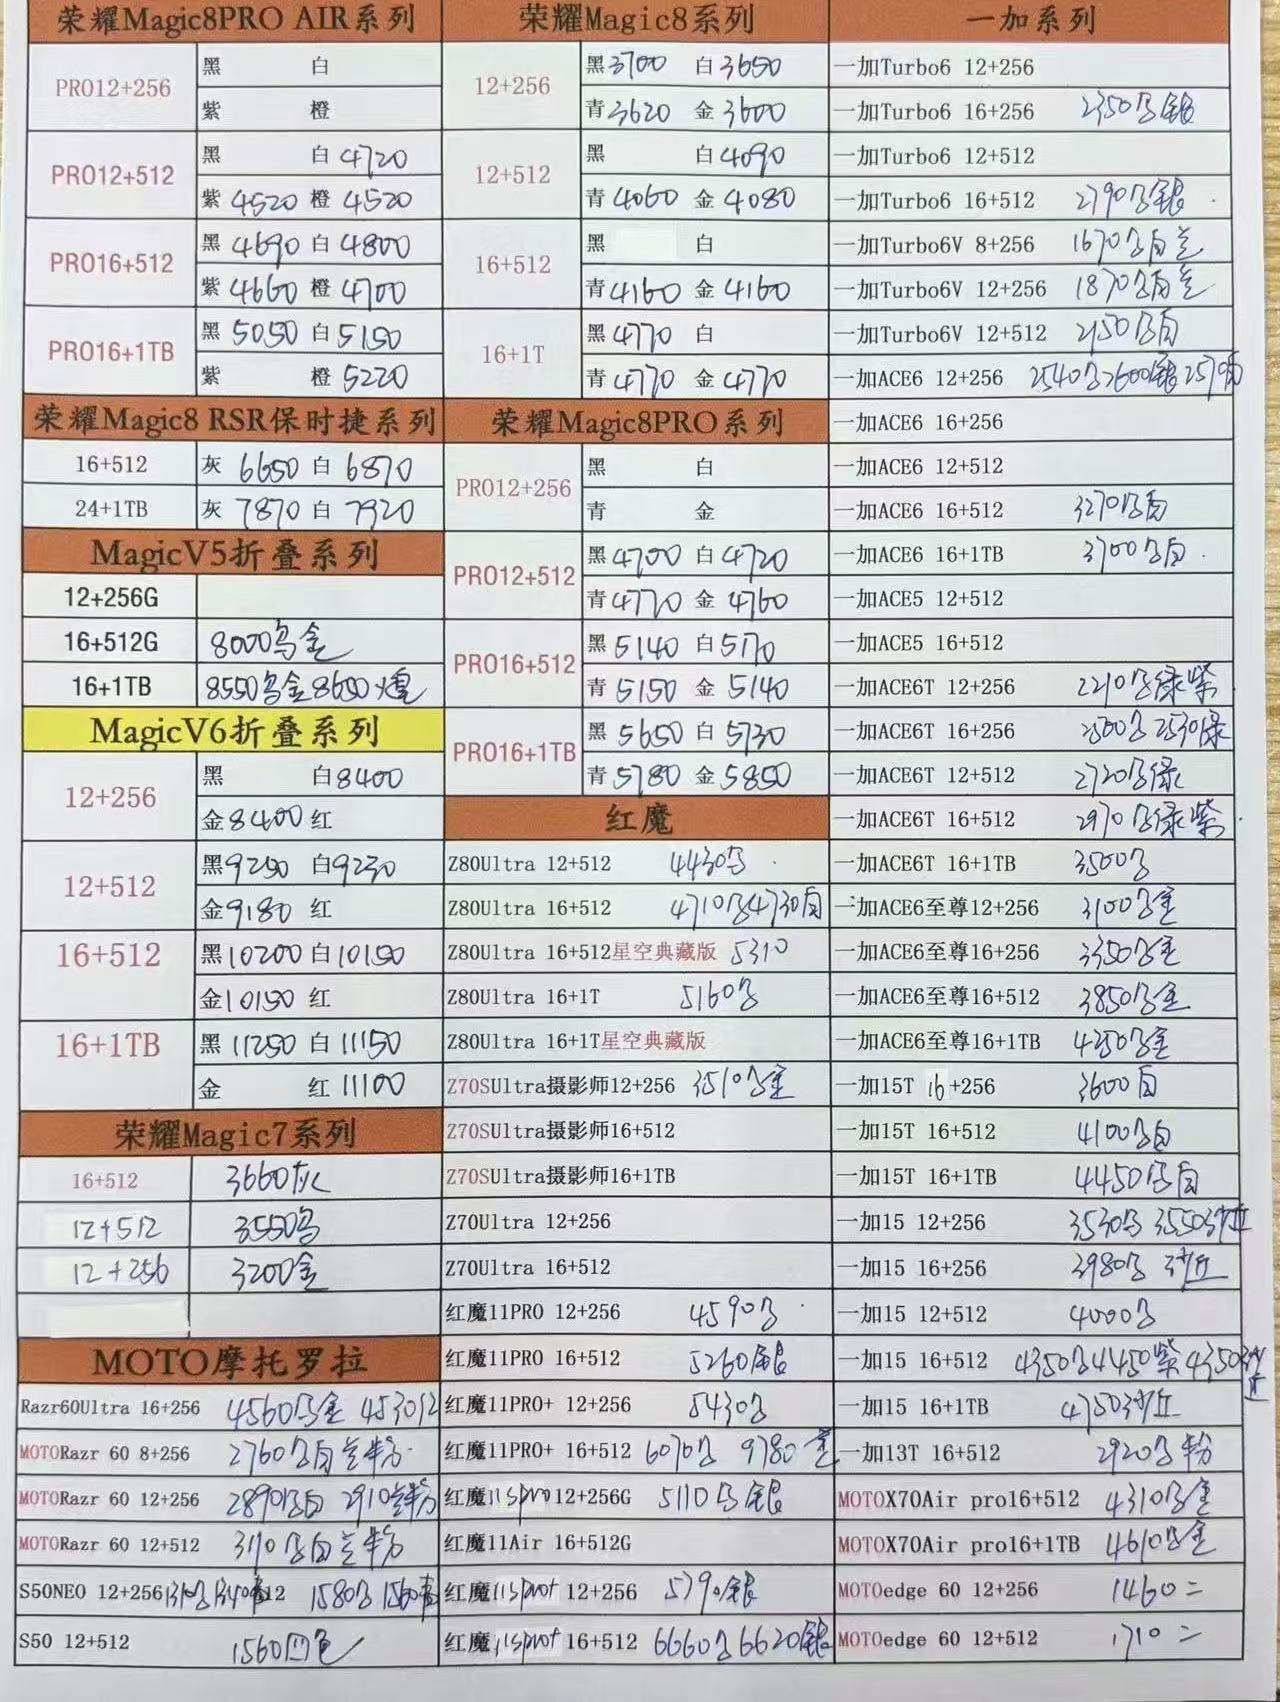 荣耀Magic8PRO AIR系列
PRO12+256
黑 白
紫 橙
PRO12+512
黑 白4720
紫 4520 橙 4520
PRO16+512
黑 4690 白 4800
紫 4660 橙 4700
PRO16+1TB
黑 5050 白 5150
紫 橙 5220
荣耀Magic8 RSR保时捷系列
16+512 灰 6650 白 6870
24+1TB 灰 7870 白 7920
MagicV5折叠系列
12+256G
16+512G 8000乌金
16+1TB 8550乌金8650煌
MagicV6折叠系列
12+256
黑 白8400
金8400 红
12+512
黑9250 白9230
金9180 红
16+512
黑10200 白10150
金10150 红
16+1TB
黑 11250 白 11150
金 红 11100
荣耀Magic7系列
16+512 3660灰
12+512 3550乌
12+256 3200金
MOTO摩托罗拉
Razr60Ultra 16+256 4560乌金 4530
MOTORazr 60 8+256 2760乌白兰粉
MOTORazr 60 12+256 2890乌白 2910兰粉
MOTORazr 60 12+512 3110乌白兰粉
S50NEO 12+256 12 1580乌 1560
S50 12+512 1560四色
荣耀Magic8系列
12+256
黑3700 白3650
青3620 金3600
12+512
黑 白4090
青4060 金4080
16+512
黑 白
青4160 金4160
16+1T
黑4770 白
青4770 金4770
荣耀Magic8PRO系列
PRO12+256
黑 白
青 金
PRO12+512
黑4700 白4720
青4770 金4760
PRO16+512
黑5140 白5170
青5150 金5140
PRO16+1TB
黑5650 白5730
青5780 金5850
红魔
Z80Ultra 12+512 4430乌
Z80Ultra 16+512 4710乌4730白
Z80Ultra 16+512星空典藏版 5310
Z80Ultra 16+1T 5160乌
Z80Ultra 16+1T星空典藏版
Z70SUltra摄影师12+256 3510乌金
Z70SUltra摄影师16+512
Z70SUltra摄影师16+1TB
Z70Ultra 12+256
Z70Ultra 16+512
红魔11PRO 12+256 4590乌
红魔11PRO 16+512 5260银
红魔11PRO+ 12+256 5430乌
红魔11PRO+ 16+512 6070乌 9780金
红魔11spro12+256G 5110乌银
红魔11Air 16+512G
红魔11spro+ 12+256 5790银
红魔11spro+ 16+512 6660乌6620银
一加系列
一加Turbo6 12+256
一加Turbo6 16+256 2350乌银
一加Turbo6 12+512
一加Turbo6 16+512 2790乌银
一加Turbo6V 8+256 1670乌白兰
一加Turbo6V 12+256 1870乌白兰
一加Turbo6V 12+512 2150乌白
一加ACE6 12+256 2540乌2600银2570白
一加ACE6 16+256
一加ACE6 12+512
一加ACE6 16+512 3270乌白
一加ACE6 16+1TB 3700乌白
一加ACE5 12+512
一加ACE5 16+512
一加ACE6T 12+256 2210乌绿紫
一加ACE6T 16+256 2500乌 2530绿
一加ACE6T 12+512 2720乌绿
一加ACE6T 16+512 2970乌绿紫
一加ACE6T 16+1TB 3500乌
一加ACE6至尊12+256 3100乌金
一加ACE6至尊16+256 3350乌金
一加ACE6至尊16+512 3850乌金
一加ACE6至尊16+1TB 4250乌金
一加15T 16+256 3600白
一加15T 16+512 4100乌白
一加15T 16+1TB 4450乌白
一加15 12+256 3530乌 3550沙丘
一加15 16+256 3980乌 沙丘
一加15 12+512 4000乌
一加15 16+512 4350乌4450紫4350沙丘
一加15 16+1TB 4750沙丘
一加13T 16+512 2920乌粉
MOTOX70Air pro16+512 4310乌金
MOTOX70Air pro16+1TB 4610乌金
MOTOedge 60 12+256 1460二
MOTOedge 60 12+512 1710二